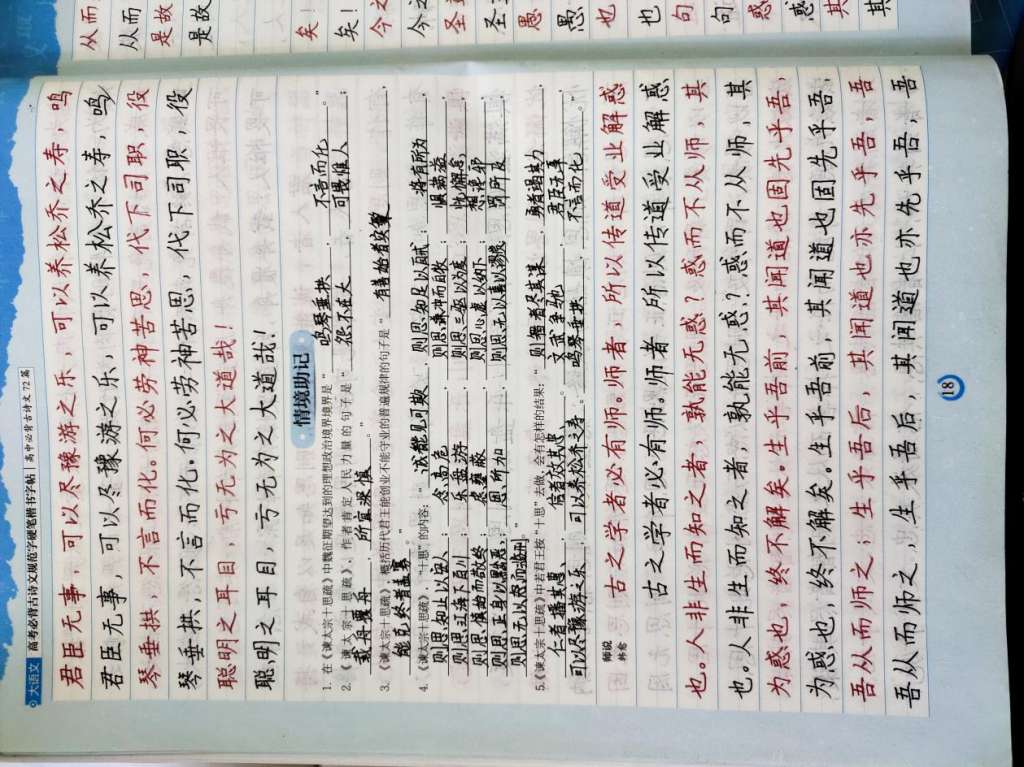 大语文 高考必背古诗文规范字硬笔楷书字帖 | 高中必背古诗文 72 篇
君臣无事，可以尽豫游之乐，可以养松乔之寿，鸣
君臣无事，可以尽豫游之乐，可以养松乔之寿，鸣
琴垂拱，不言而化。何必劳神苦思，代下司职，役
琴垂拱，不言而化。何必劳神苦思，代下司职，役
聪明之耳目，亏无为之大道哉！
聪明之耳目，亏无为之大道哉！
情境助记
1. 在《谏太宗十思疏》中魏征期望达到的理想政治境界是“鸣琴垂拱，不言而化。”
2. 《谏太宗十思疏》，作者肯定人民力量的句子是“怨不在大，可畏惟人，
载舟覆舟，所宜深慎。”
3. 《谏太宗十思疏》，概括历代君王能创业不能守业的普遍规律的句子是“有善始者实繁，
能克终者盖寡。”
4. 《谏太宗十思疏》，“十思”的内容：“诚能见可欲，则思知足以自戒；将有所为，
则思知止以安人；念高危，则思谦冲而自牧；惧满盈，
则思江海下百川；乐盘游，则思三驱以为度；忧懈怠，
则思慎始而敬终；虑壅蔽，则思心虚以纳下；想谗邪，
则思正身以黜恶；恩所加，则思无以喜以谬赏；罚所及，
则思无以怒而滥刑。”
5. 《谏太宗十思疏》中若君王按“十思”去做，会有怎样的结果：“则智者尽其谋，勇者竭其力，
仁者播其惠，信者效其忠；文武争驰，君臣无事，
可以尽豫游之乐，可以养松乔之寿，鸣琴垂拱，不言而化。”
师说
韩愈
古之学者必有师。师者，所以传道受业解惑
古之学者必有师。师者，所以传道受业解惑
也。人非生而知之者，孰能无惑？惑而不从师，其
也。人非生而知之者，孰能无惑？惑而不从师，其
为惑也，终不解矣。生乎吾前，其闻道也固先乎吾，
为惑也，终不解矣。生乎吾前，其闻道也固先乎吾，
吾从而师之；生乎吾后，其闻道也亦先乎吾，吾
吾从而师之，生乎吾后，其闻道也亦先乎吾，吾
18